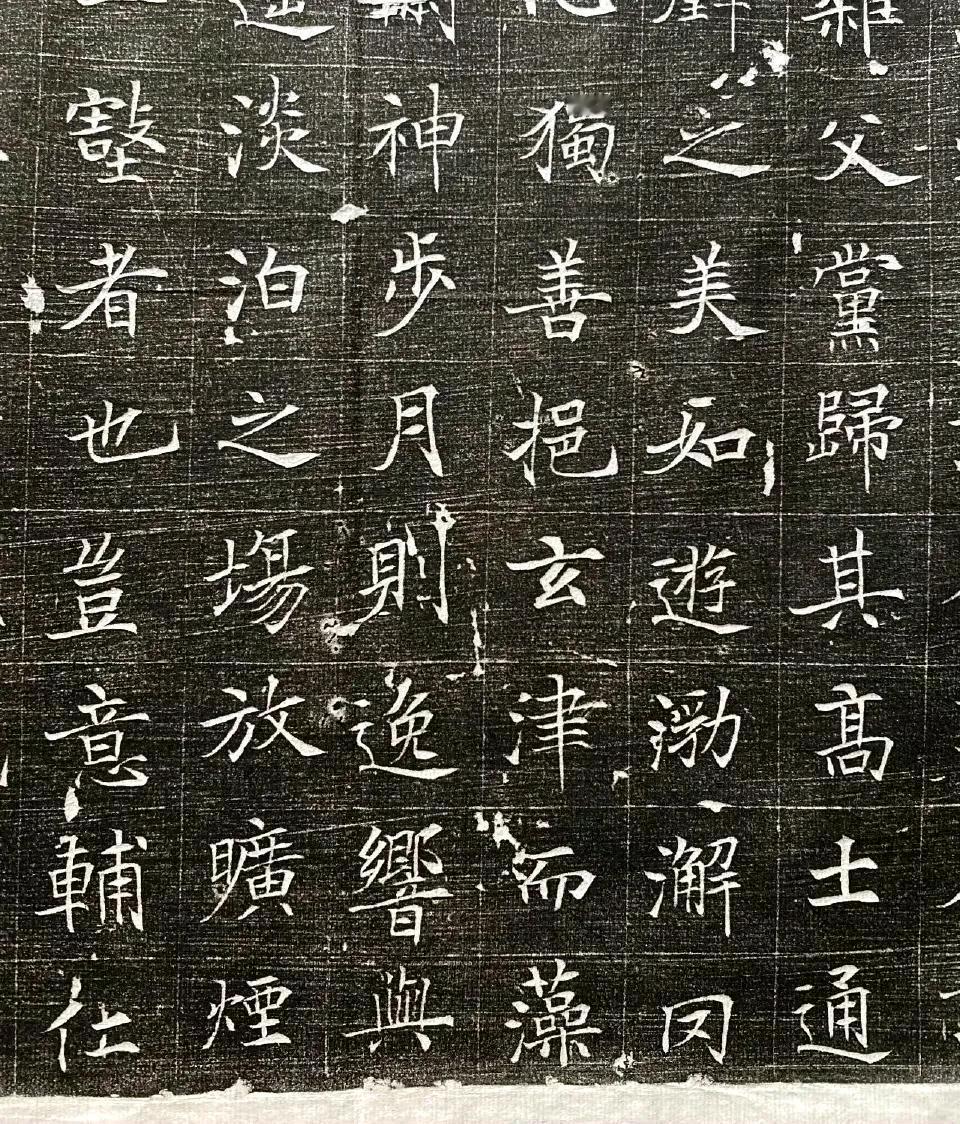 雜父黨歸其髙士通
之美如遊渤澥囙
獨善挹玄津而藻
神步月則逸響與
淡泊之場放曠煙
壑者也豈意輔仕